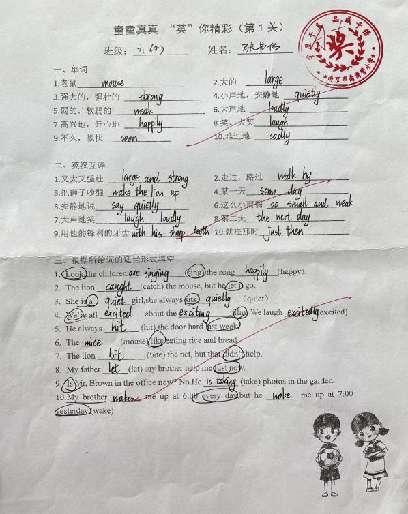 童童真真 "英"你精彩（第1关）
班级： 姓名：
一、单词
1.老鼠 mouse 2.大的 large
3.强大的，强壮的 strong 4.小声地，安静地 quietly
5.弱的，软弱的 weak 6.大声地 loudly
7.高兴地，开心地 happily 8.笑，大笑 laugh
9.不久，很快 soon 10. sadly
二、英汉互译
1.又大又强壮 large and strong 2.走过，路过 walk by
3.把狮子吵醒 wake the lion up 4.某一天 some day
5.安静地说 say quietly 6.这么小而弱 so small and weak
7.大声地笑 laugh loudly 8.第二天 the next day
9.用他的锋利的牙齿 with his sharp teeth 10.就在那时 just then
三、根据所给词的适当形式填空
1. Look, the children are singing (sing) the song happily (happy).
2. The lion caught (catch) the mouse, but he let go.
3. She is a quiet girl, she always quietly (quiet)
4. We all excited about the exciting We laugh excitedly (excited)
5. He always hit (hit) the door hard last week.
6. The mice (mouse) like eating rice and bread.
7. The lion bit (bite) the net, but that didn't help.
8. My father let (let) my brother help me just now.
9. Is Mr. Brown in the office now? No. He is taking (take) photos in the garden.
10. My brother me up at 6:00 every day, but he woke me up at 7:00
yesterday. (wake)